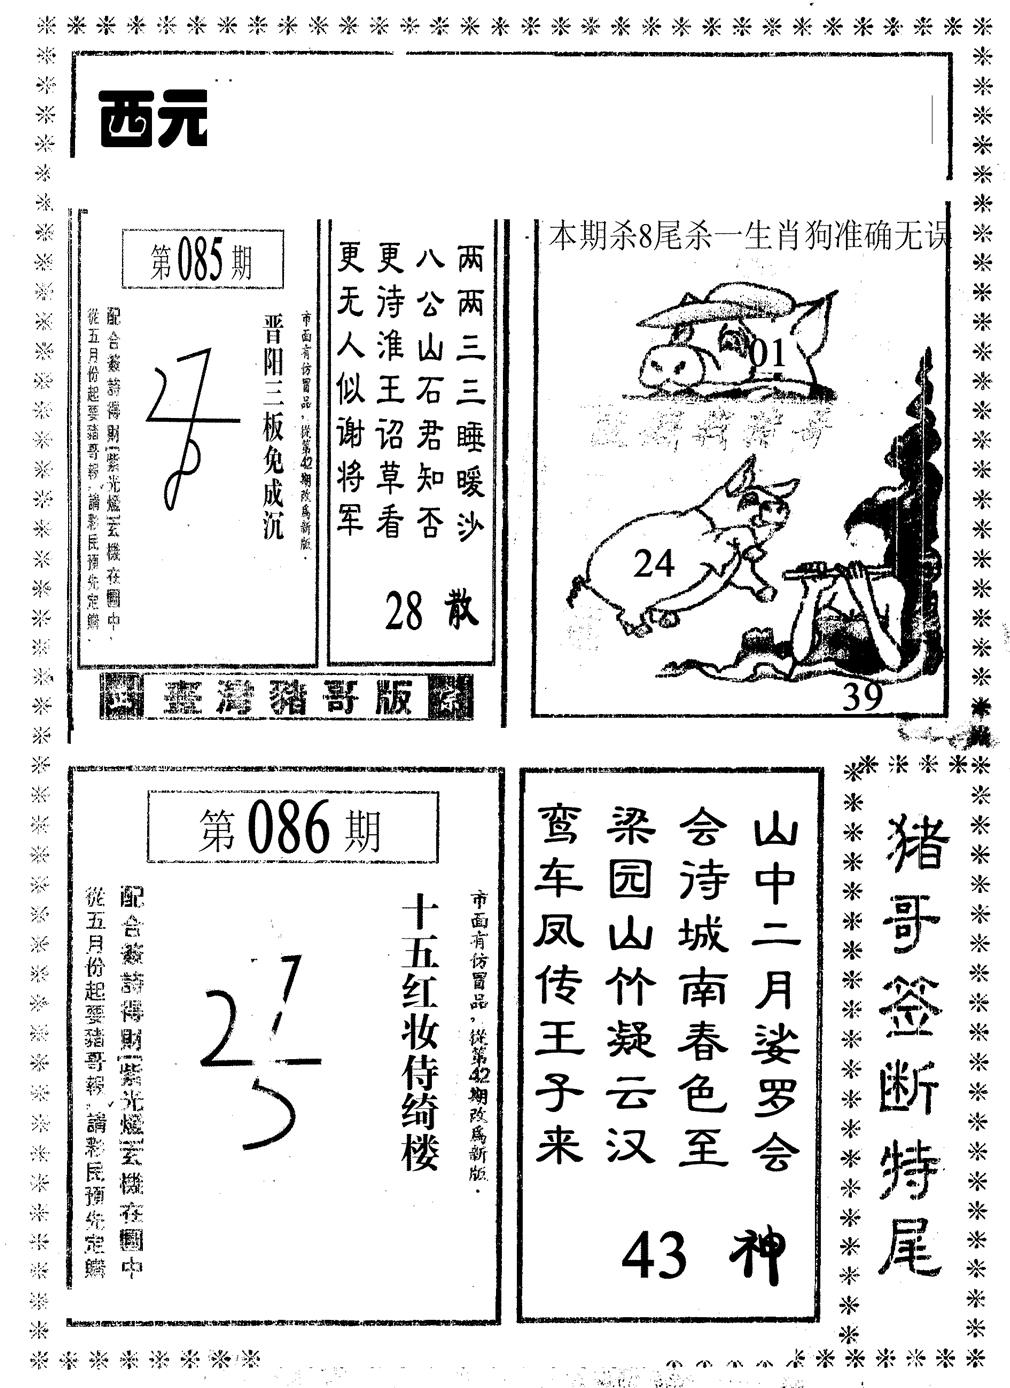 西元
第085期
市面有仿冒品，從第42期改為新版．
晋阳三板免成沉
配合簽詩得財 紫光燈 玄機在圖中，
從五月份起要豬哥報，請彩民預先定購．
两两三三睡暖沙
八公山石君知否
更诗淮王诏草看
更无人似谢将军
28 散
臺灣豬哥版
本期杀8尾杀一生肖狗准确无误
01
24
39
第086期
市面有仿冒品，從第42期改為新版．
十五红妆侍绮楼
配合簽詩得財 紫光燈 玄機在圖中
從五月份起要豬哥報，請彩民預先定購
山中二月娑罗会
会待城南春色至
梁园山竹凝云汉
鸾车凤传王子来
43 神
猪哥签断特尾